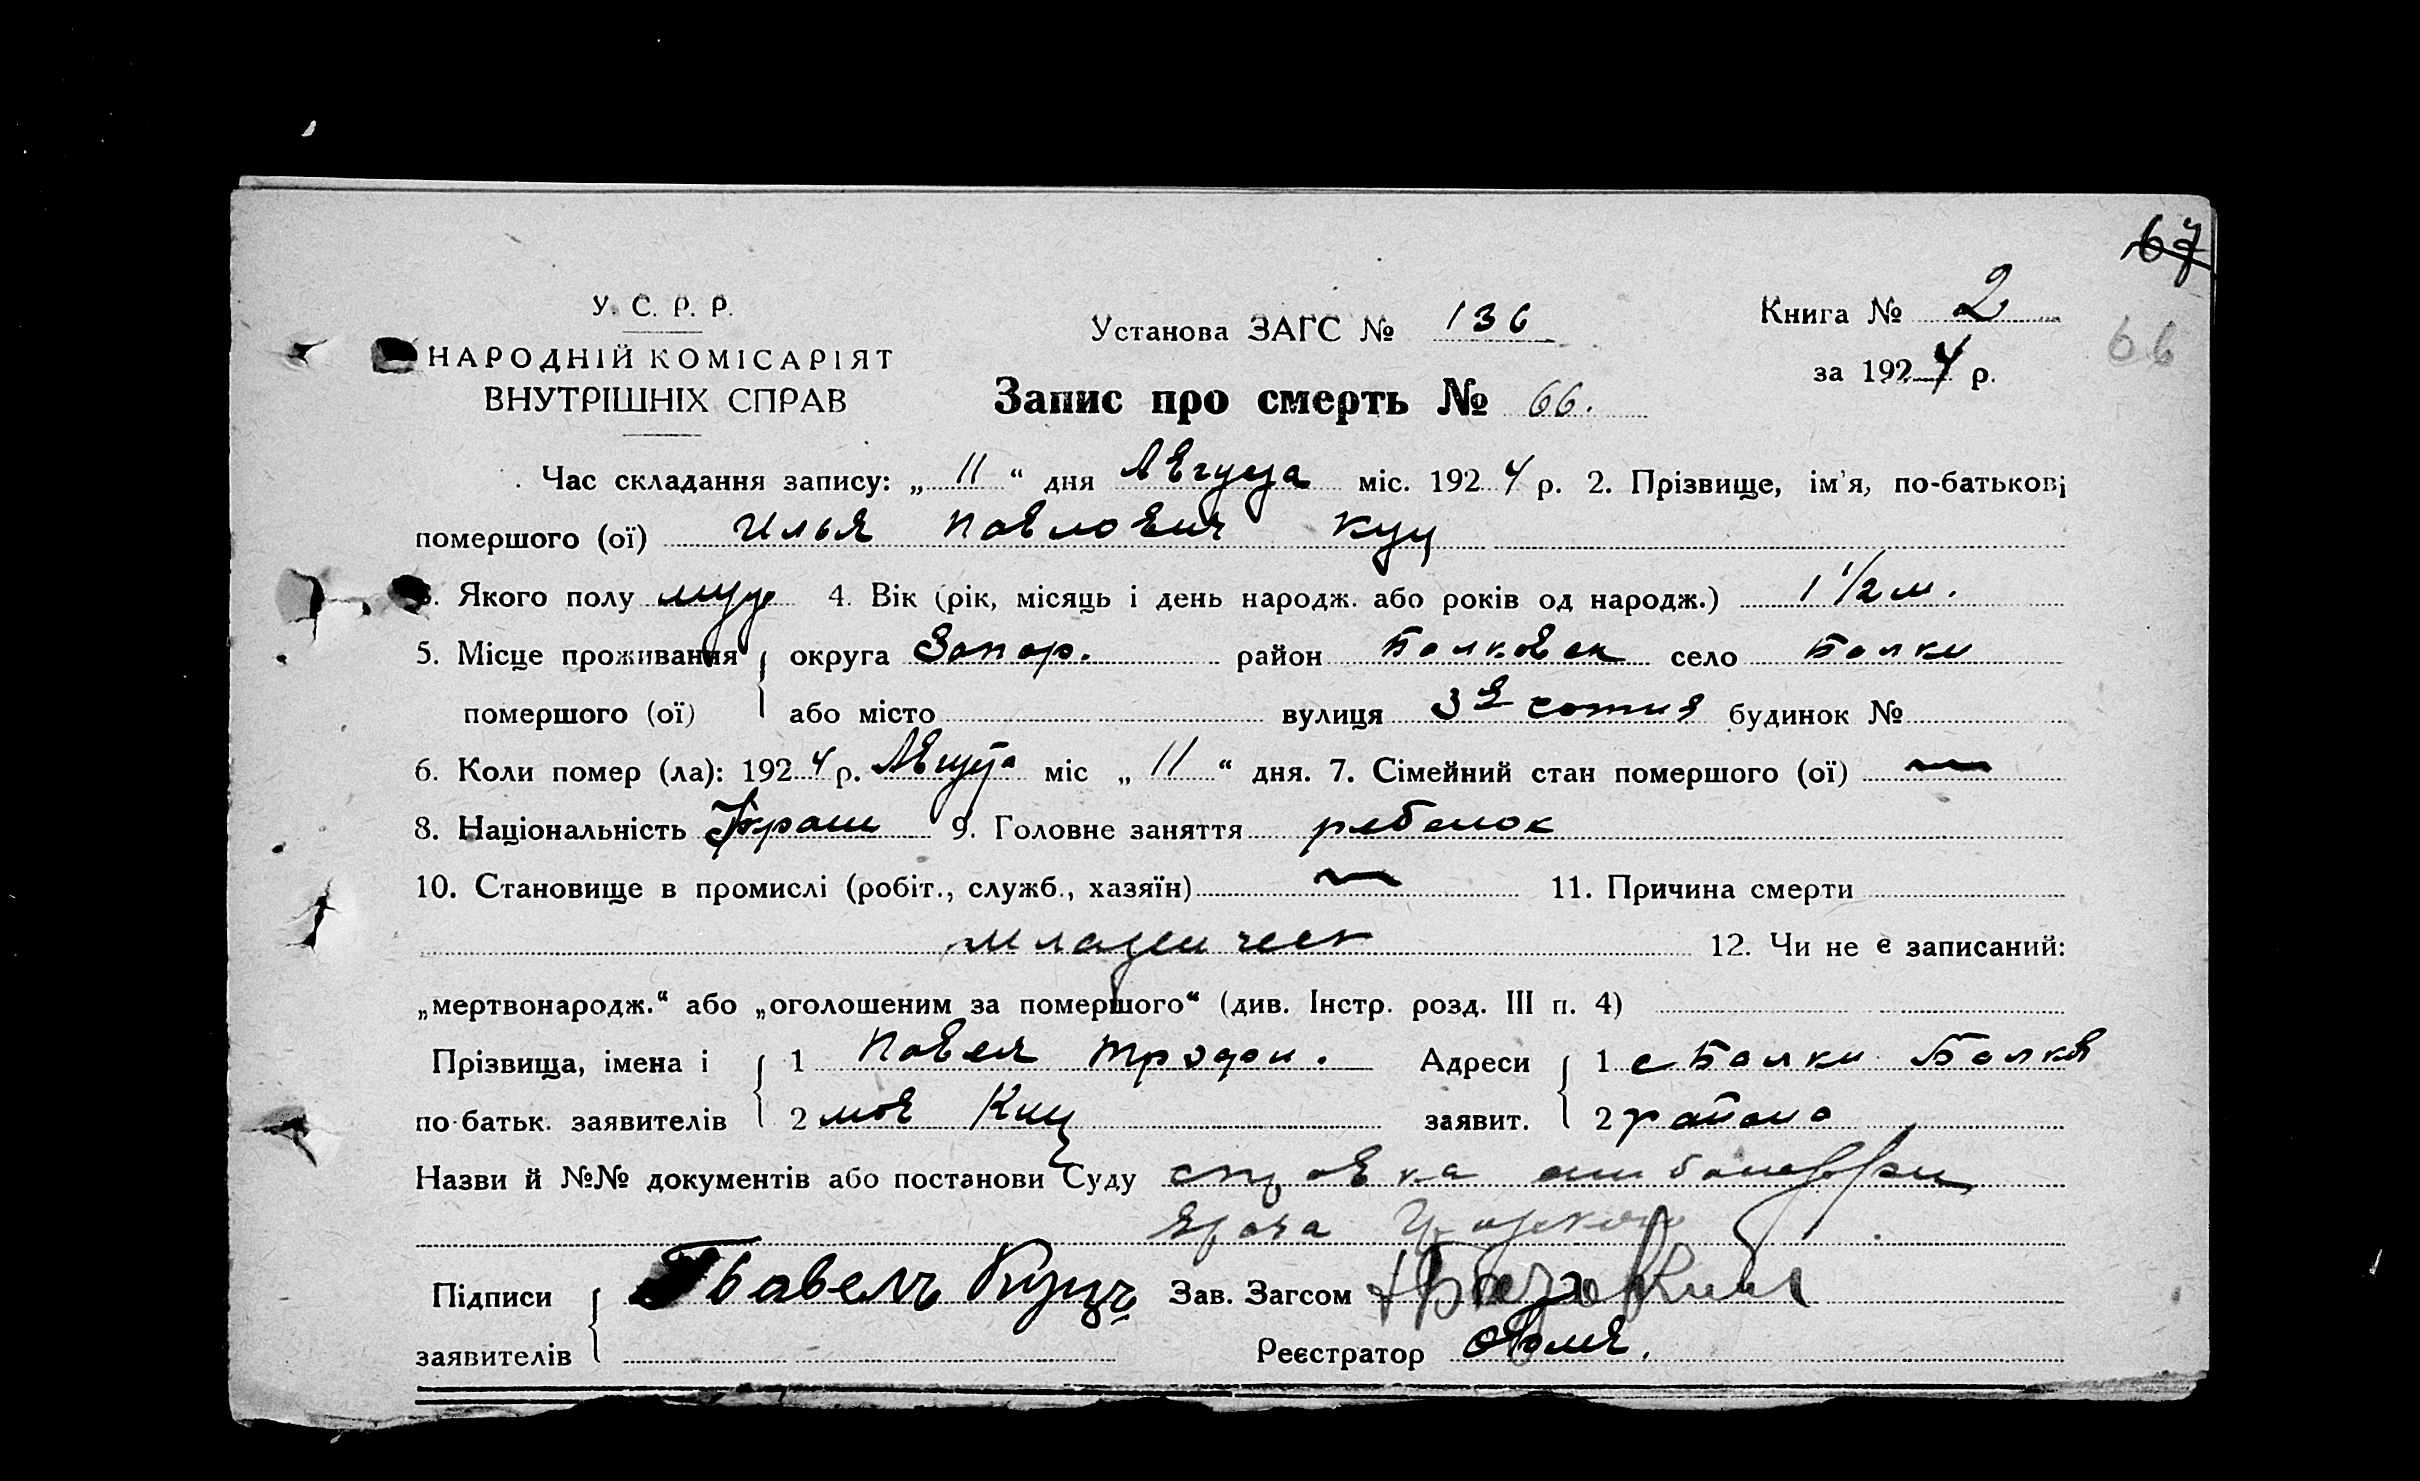 67
У. С. Р. Р.
НАРОДНІЙ КОМІСАРІЯТ
ВНУТРІШНІХ СПРАВ
Установа ЗАГС № 136
Книга № 2
за 1924 р.
66
Запис про смерть № 66.
Час складання запису: „ 11 “ дня Августа міс. 1924 р. 2. Прізвище, ім'я, по-батькові
помершого (ої) Илья Павлович Куц
3. Якого полу муж 4. Вік (рік, місяць і день народж. або років од народж.) 1 1/2 м.
5. Місце проживання округа Запор. район Балковск село Балки
помершого (ої) або місто вулиця 3я сотня будинок №
6. Коли помер (ла): 1924 р. Августа міс „ 11 “ дня. 7. Сімейний стан помершого (ої) —
8. Національність Украин 9. Головне заняття ребенок
10. Становище в промислі (робіт., служб., хазяїн) — 11. Причина смерти
младенческ 12. Чи не є записаний:
„мертвонародж.“ або „оголошеним за помершого“ (див. Інстр. розд. III п. 4)
Прізвища, імена і 1 Павел Трофи. Адреси 1 с Балки Балков
по-батьк. заявителів 2 мов Куц заявит. 2 района
Назви й №№ документів або постанови Суду справка амбулатории
врача
Підписи Павелъ Куцъ Зав. Загсом
заявителів Реєстратор